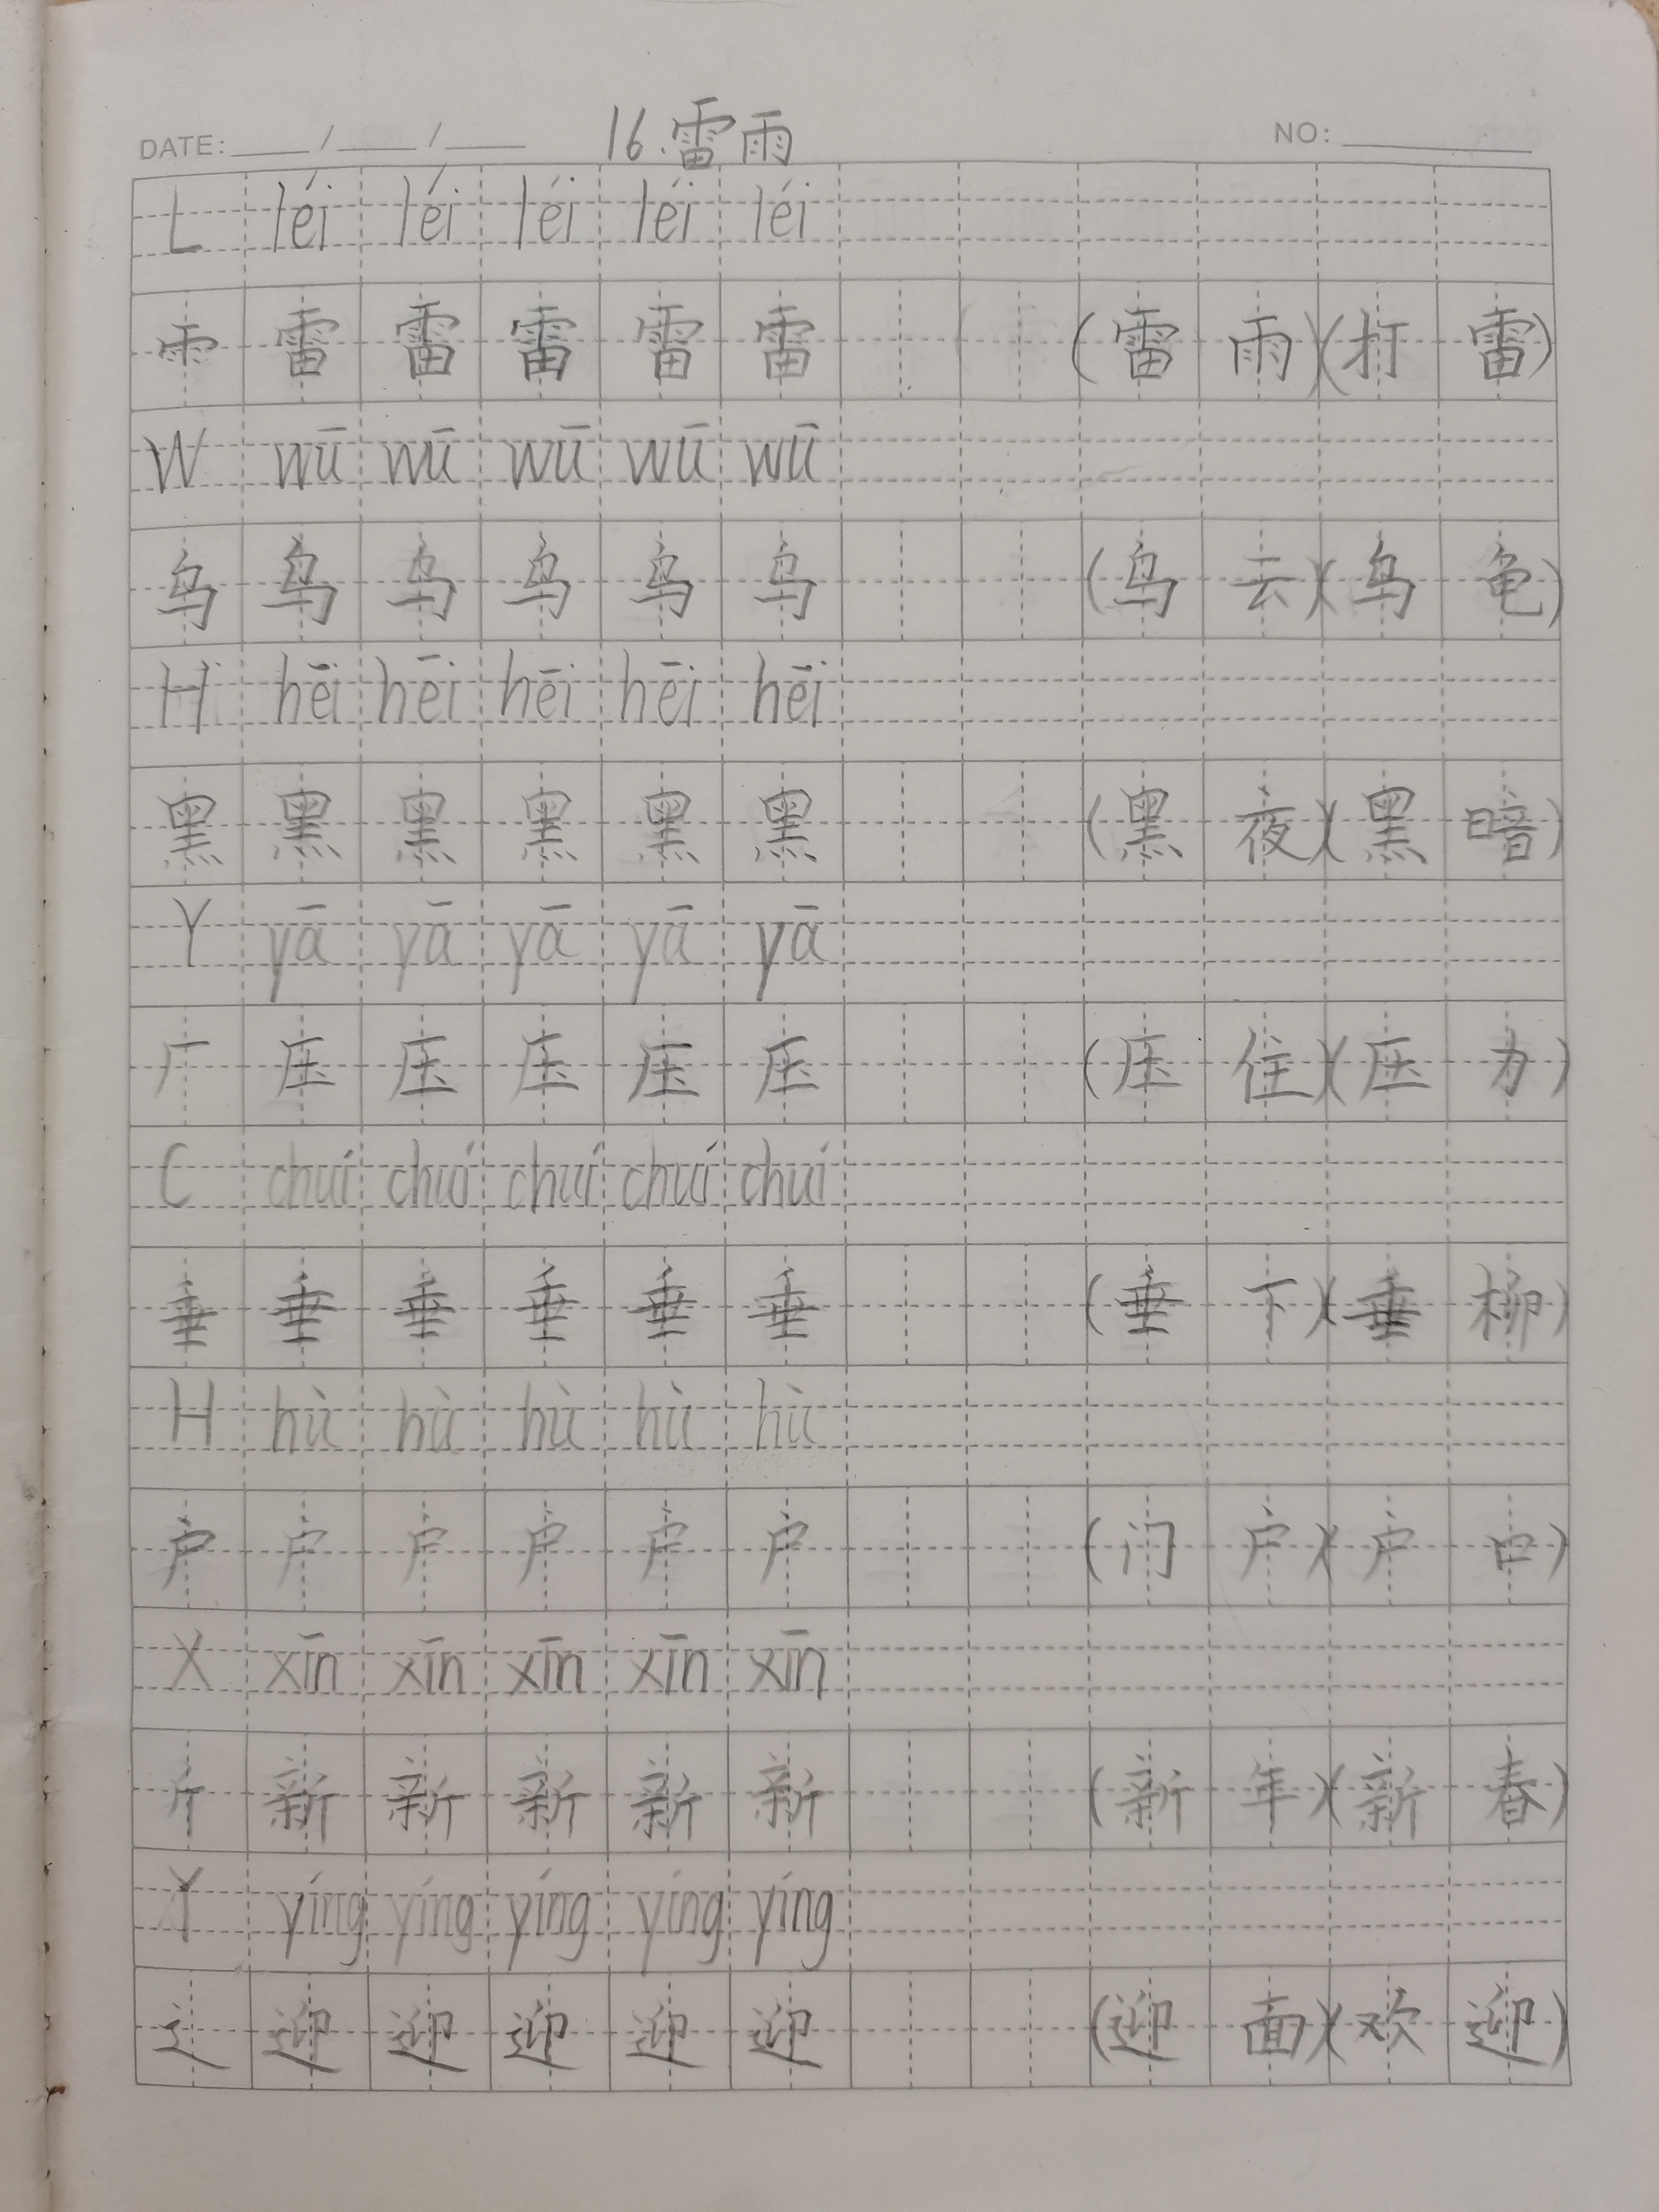 DATE: ___ / ___ / ___ 16.雷雨 NO: ______
L léi léi léi léi léi
⻗ 雷 雷 雷 雷 雷 (雷雨)(打雷)
W wū wū wū wū wū
乌 乌 乌 乌 乌 乌 (乌云)(乌龟)
H hēi hēi hēi hēi hēi
黑 黑 黑 黑 黑 黑 (黑夜)(黑暗)
Y yā yā yā yā yā
厂 压 压 压 压 压 (压住)(压力)
C chuí chuí chuí chuí chuí
垂 垂 垂 垂 垂 垂 (垂下)(垂柳)
H hù hù hù hù hù
户 户 户 户 户 户 (门户)(户口)
X xīn xīn xīn xīn xīn
斤 新 新 新 新 新 (新年)(新春)
Y yíng yíng yíng yíng yíng
辶 迎 迎 迎 迎 迎 (迎面)(欢迎)